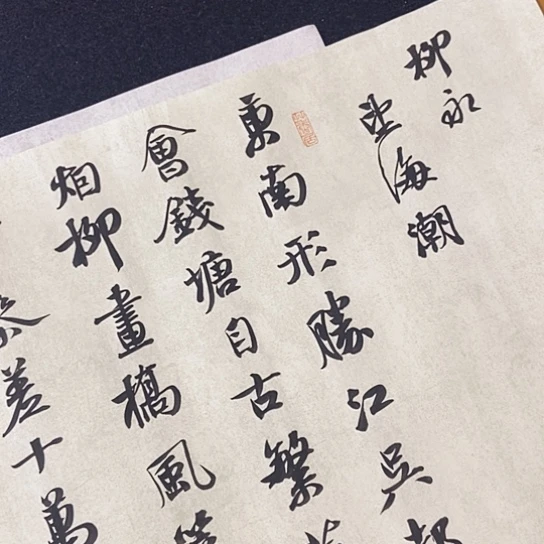 柳永
望海潮
東南形勝江吳都
會錢塘自古繁華
烟柳畫橋風簾
參差十萬